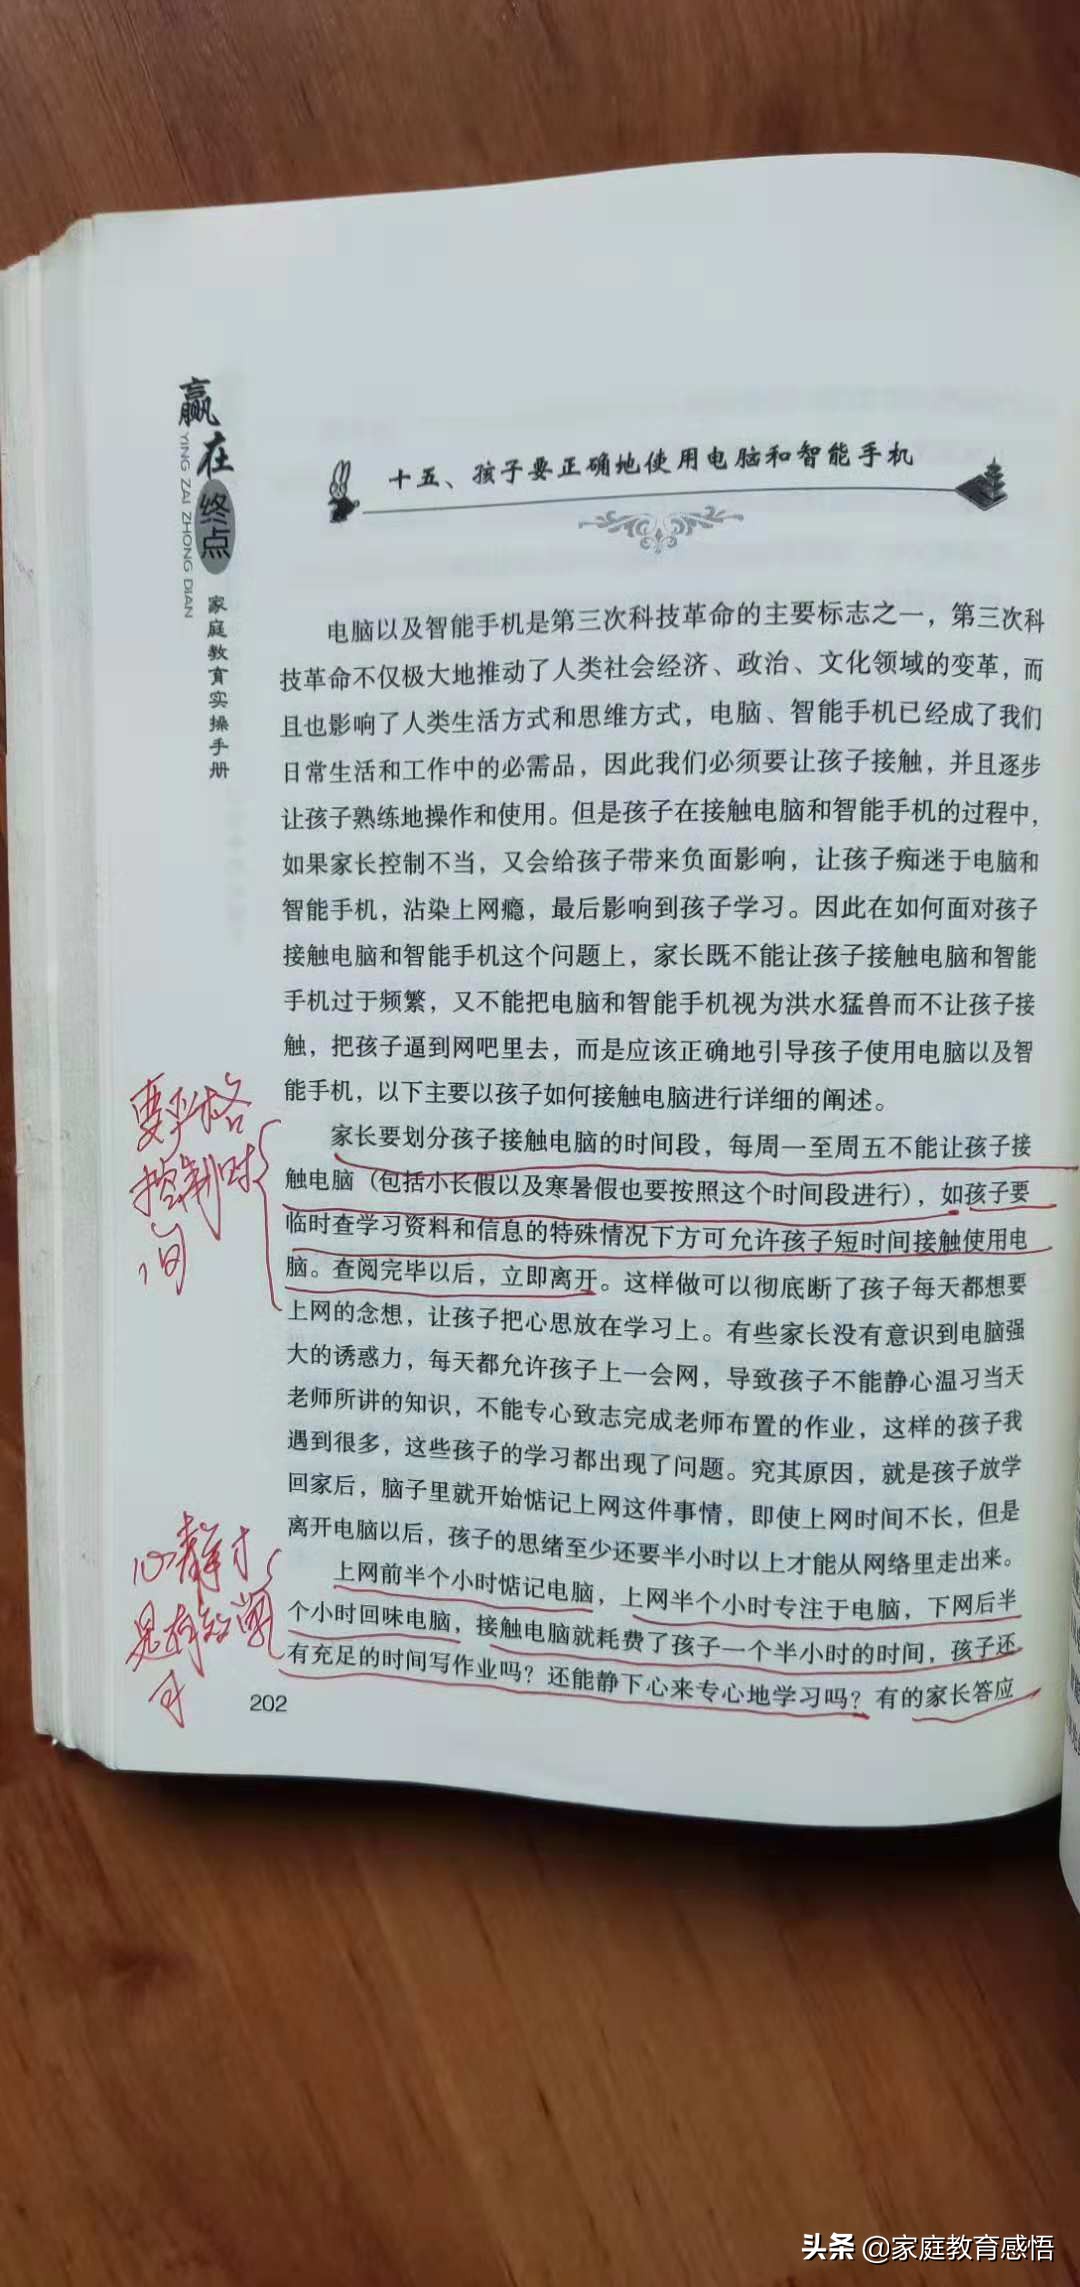 赢在终点
YING ZAI ZHONG DIAN
家庭教育实操手册
十五、孩子要正确地使用电脑和智能手机
电脑以及智能手机是第三次科技革命的主要标志之一，第三次科
技革命不仅极大地推动了人类社会经济、政治、文化领域的变革，而
且也影响了人类生活方式和思维方式，电脑、智能手机已经成了我们
日常生活和工作中的必需品，因此我们必须要让孩子接触，并且逐步
让孩子熟练地操作和使用。但是孩子在接触电脑和智能手机的过程中，
如果家长控制不当，又会给孩子带来负面影响，让孩子痴迷于电脑和
智能手机，沾染上网瘾，最后影响到孩子学习。因此在如何面对孩子
接触电脑和智能手机这个问题上，家长既不能让孩子接触电脑和智能
手机过于频繁，又不能把电脑和智能手机视为洪水猛兽而不让孩子接
触，把孩子逼到网吧里去，而是应该正确地引导孩子使用电脑以及智
能手机，以下主要以孩子如何接触电脑进行详细的阐述。
家长要划分孩子接触电脑的时间段，每周一至周五不能让孩子接
触电脑（包括小长假以及寒暑假也要按照这个时间段进行），如孩子要
临时查学习资料和信息的特殊情况下方可允许孩子短时间接触使用电
脑。查阅完毕以后，立即离开。这样做可以彻底断了孩子每天都想要
上网的念想，让孩子把心思放在学习上。有些家长没有意识到电脑强
大的诱惑力，每天都允许孩子上一会网，导致孩子不能静心温习当天
老师所讲的知识，不能专心致志完成老师布置的作业，这样的孩子我
遇到很多，这些孩子的学习都出现了问题。究其原因，就是孩子放学
回家后，脑子里就开始惦记上网这件事情，即使上网时间不长，但是
离开电脑以后，孩子的思绪至少还要半小时以上才能从网络里走出来。
上网前半个小时惦记电脑，上网半个小时专注于电脑，下网后半
个小时回味电脑，接触电脑就耗费了孩子一个半小时的时间，孩子还
有充足的时间写作业吗？还能静下心来专心地学习吗？有的家长答应
202
要严格
控制时
间
心静才
是有效学
习
头条 @家庭教育感悟